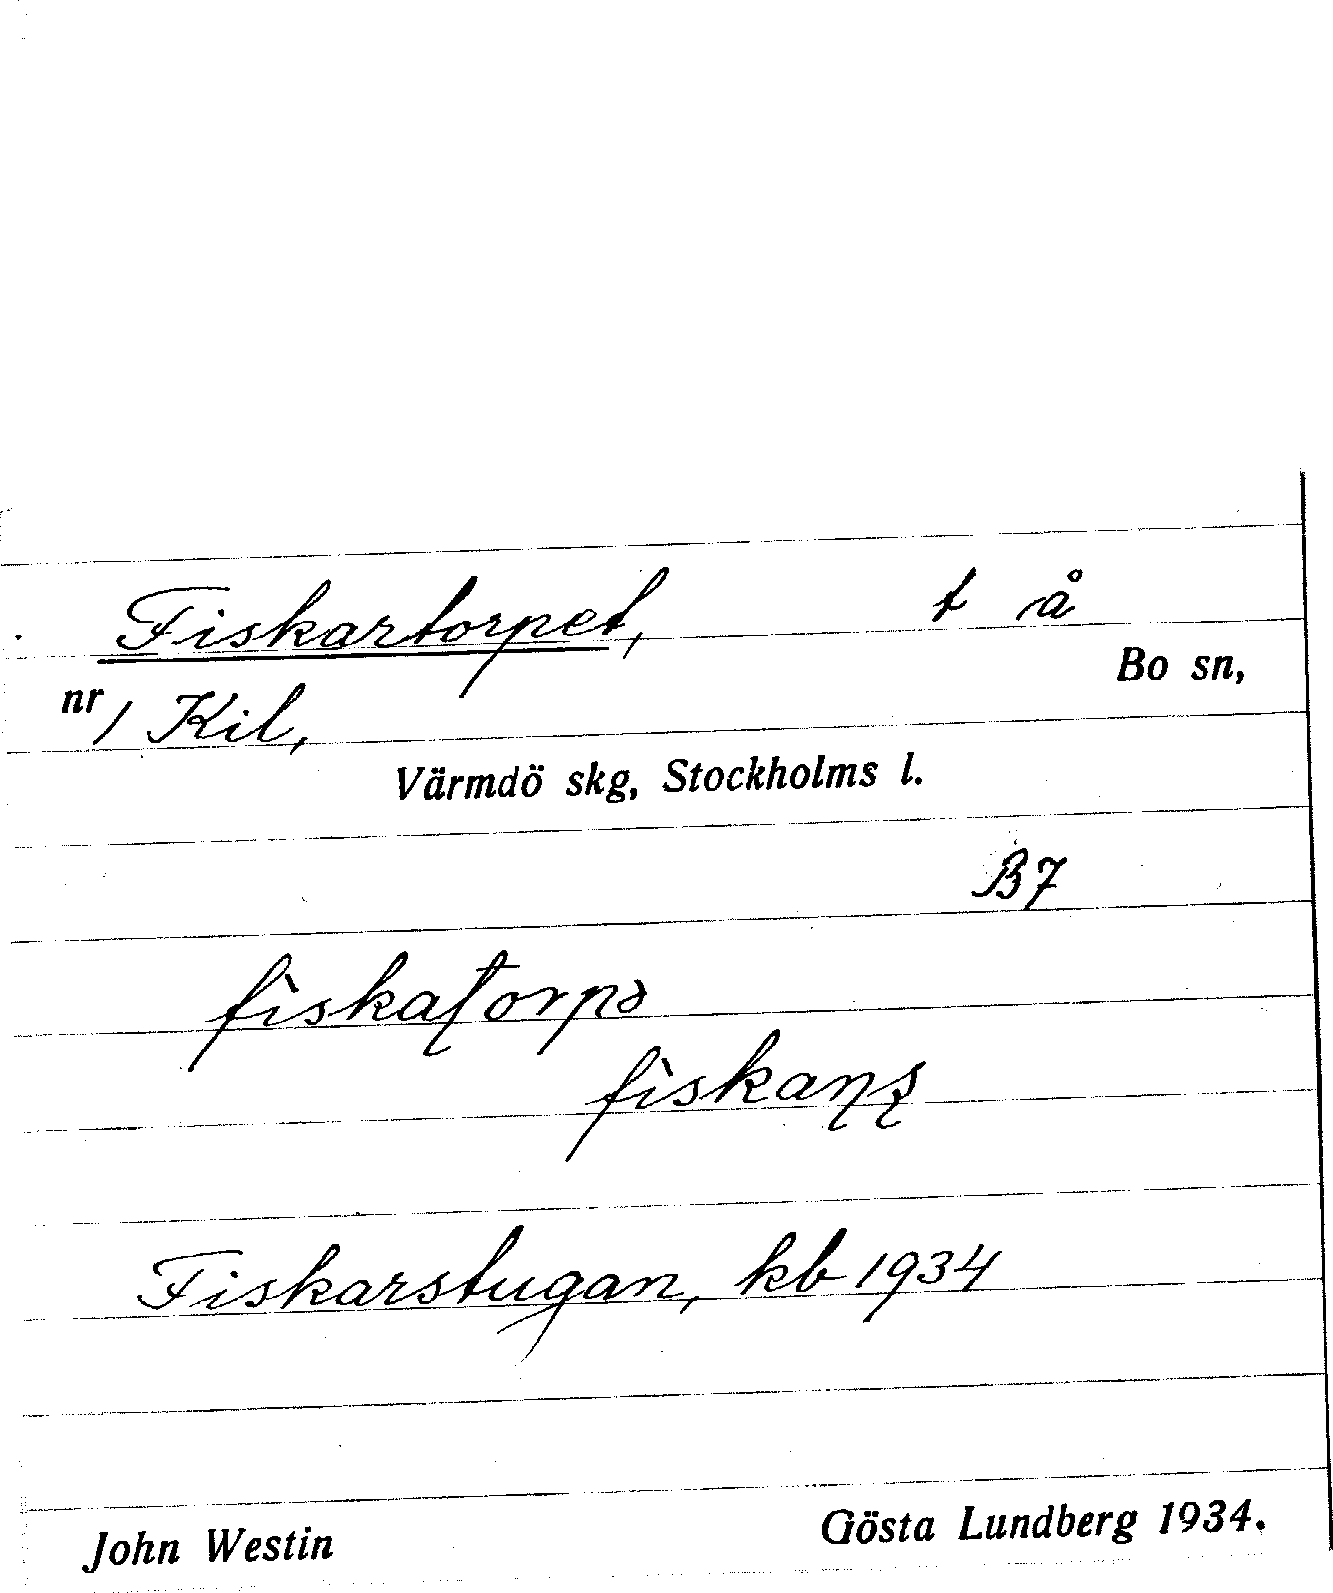 Fiskartorpet, t å
Bo sn,
nr 1 Kil,
Värmdö skg, Stockholms l.
B7
Fiskarstugan, kb 1934
John Westin Gösta Lundberg 1934.